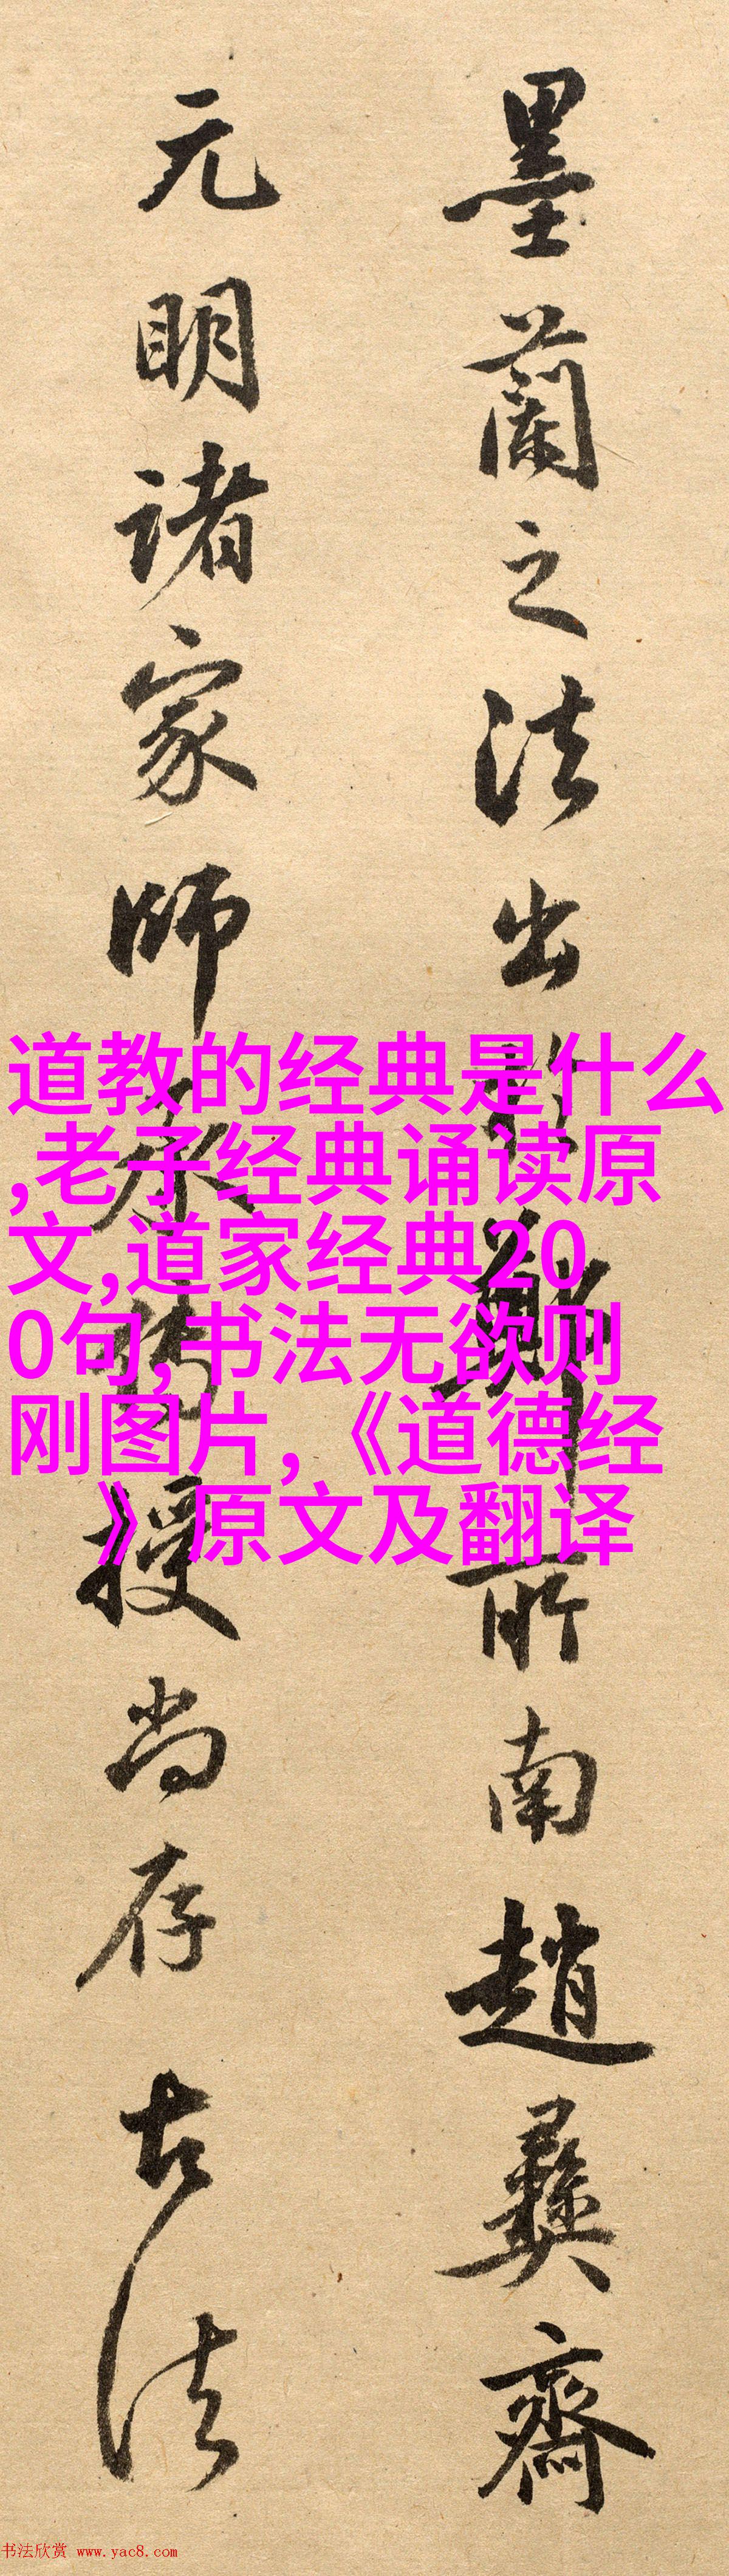 墨蘭之法出於鄭所南趙彝齋
元明諸家師承傳授尚存古法
道教的经典是什么
,老子经典诵读原
文,道家经典20
0句,书法无欲则
刚图片,《道德经
》原文及翻译
书法欣赏 www.yac8.com